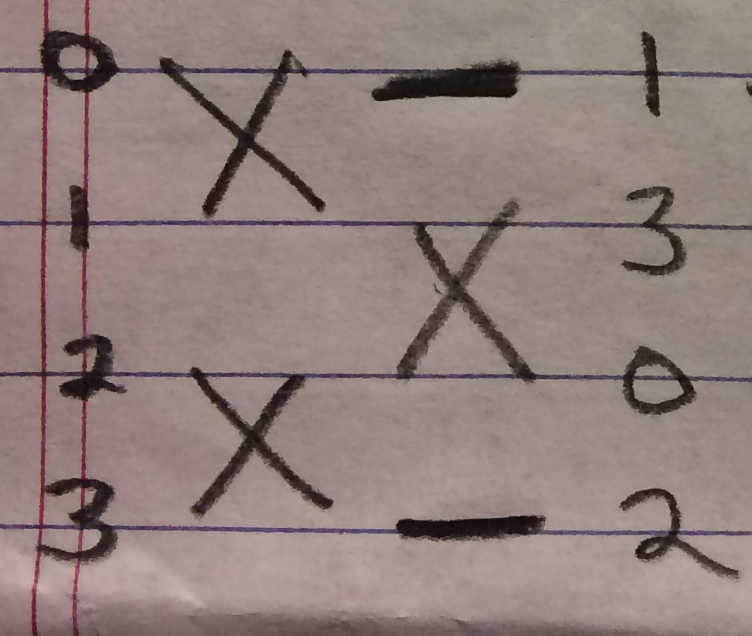 0 X — 1
1 X 3
2 X 0
3 — 2